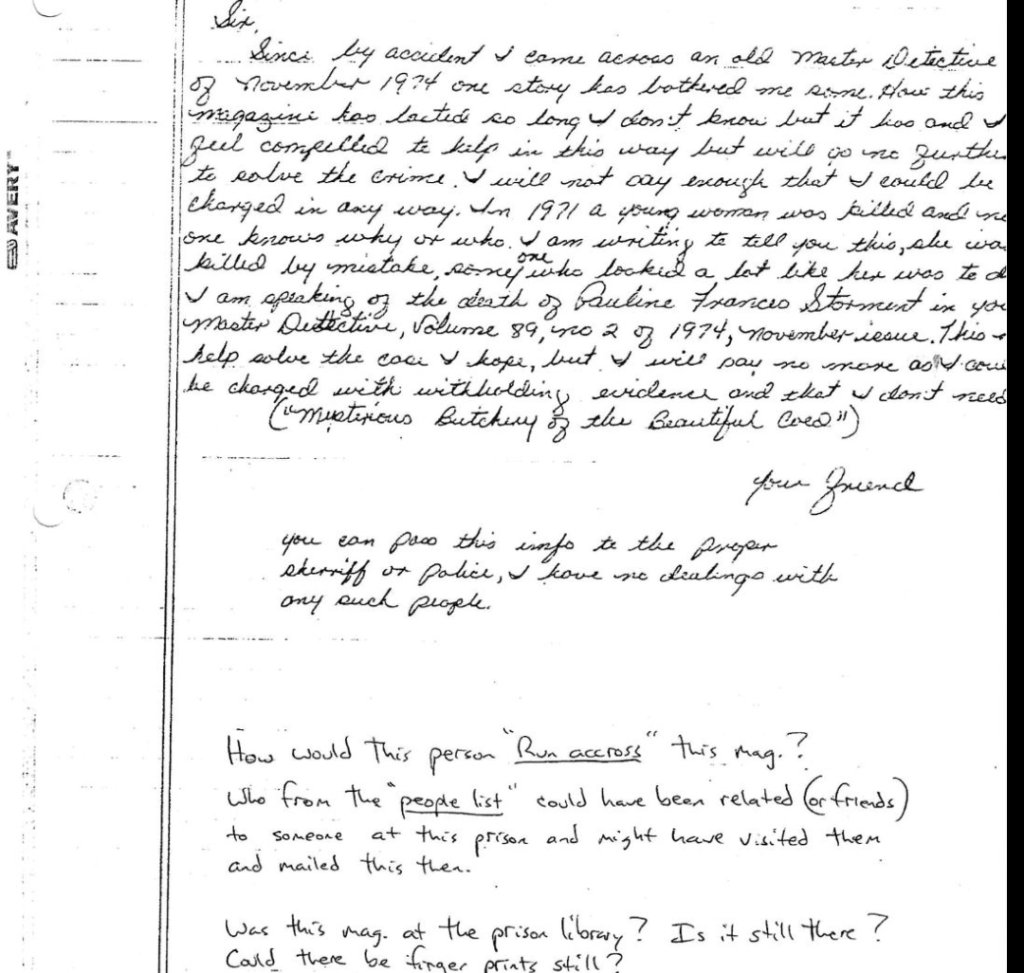 Sir,
Since by accident I came across an old Master Detective
of November 1974 one story has bothered me some. How this
magazine has lasted so long I don't know but it has and I
feel compelled to help in this way but will go no furthe
to solve the crime. I will not say enough that I could be
charged in any way. In 1971 a young woman was killed and no
one knows why or who. I am writing to tell you this, she was
killed by mistake, some one who looked a lot like her was to d
I am speaking of the death of Pauline Frances Storment in you
Master Detective, Volume 89, no 2 of 1974, November issue. This
help solve the case I hope, but I will say no more as I cou
be charged with withholding evidence and that I don't need
("Mysterious Butchery of the Beautiful Coed")
your friend
you can pass this info to the proper
sherriff or police, I have no dealings with
any such people.
How would this person "Run accross" this mag.?
Who from the "people list" could have been related (or friends)
to someone at this prison and might have visited them
and mailed this then.
Was this mag. at the prison library? Is it still there?
Could there be finger prints still?
AVERY